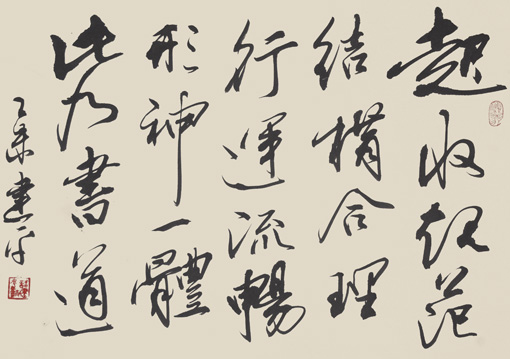 起收規范
結構合理
行運流暢
形神一體
此乃書道
建平